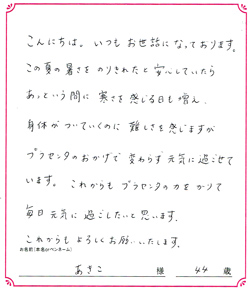 こんにちは。いつもお世話になっております。
この夏の暑さをのりきれたと安心していたら
あっという間に寒さを感じる日も増え、
身体がついていくのに難しさを感じますが
プラセンタのおかげで変わらず元気に過ごせて
います。これからもプラセンタの力をかりて
毎日元気に過ごしたいと思います。
これからもよろしくお願いいたします。
お名前(本名orペンネーム)
あきこ 様 44 歳